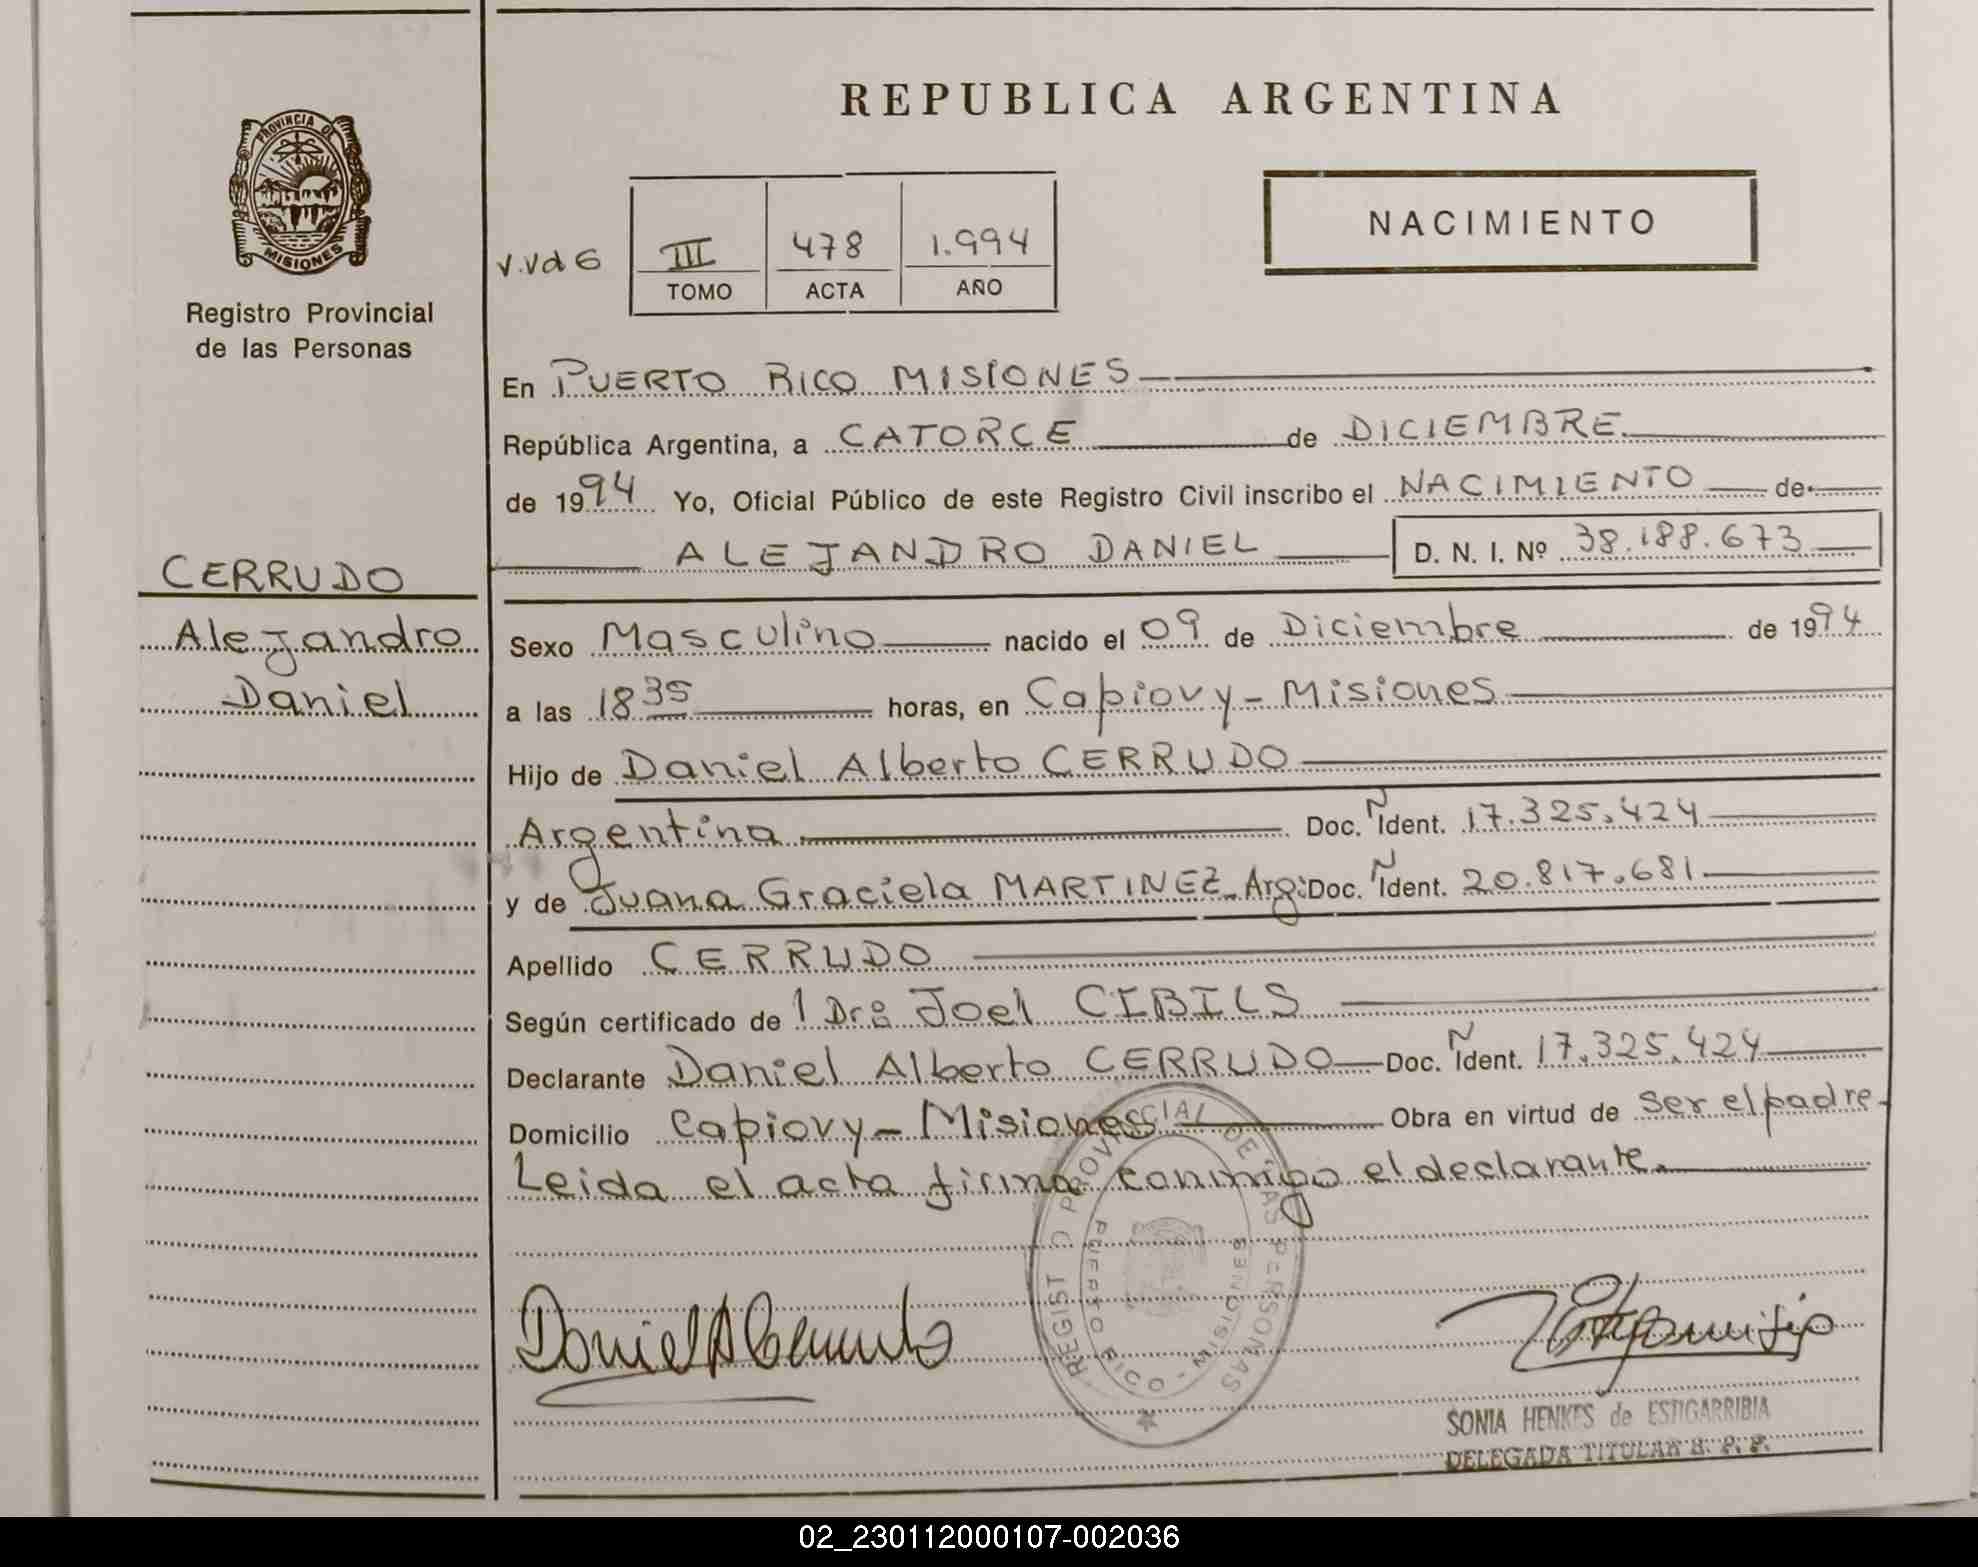 REPUBLICA ARGENTINA
PROVINCIA DE
MISIONES
Registro Provincial
de las Personas
NACIMIENTO
III 478 1.994
TOMO ACTA AÑO
En PUERTO RICO MISIONES
República Argentina, a CATORCE de DICIEMBRE
de 1994 Yo, Oficial Público de este Registro Civil inscribo el NACIMIENTO de
ALEJANDRO DANIEL D. N. I. Nº 38.188.673
CERRUDO
Alejandro
Daniel
Sexo Masculino nacido el 09 de Diciembre de 1994
a las 18 35 horas, en Capiovy - Misiones
Hijo de Daniel Alberto CERRUDO
Argentina Doc. Ñ Ident. 17.325.424
y de Juana Graciela MARTINEZ - Arg: Doc. Ñ Ident. 20.817.681
Apellido CERRUDO
Según certificado de l Dr: Joel CIBILS
Declarante Daniel Alberto CERRUDO Doc. Ñ Ident. 17.325.424
Domicilio Capiovy - Misiones Obra en virtud de ser el padre.
Leida el acta firma conmigo el declarante.
REGISTRO PROVINCIAL DE LAS PERSONAS
PUERTO RICO - MISIONES
Daniel A Cerrudo
SONIA HENKES de ESTIGARRIBIA
DELEGADA TITULAR R. P. P.
02_230112000107-002036